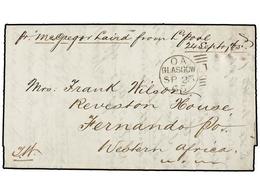 pr. Macgregor Laird from L'pool
24 Sept/65
OA
GLASGOW
SP 23
Mrs. Frank Wilson
Reveston House
Fernando Po.
Western Africa.